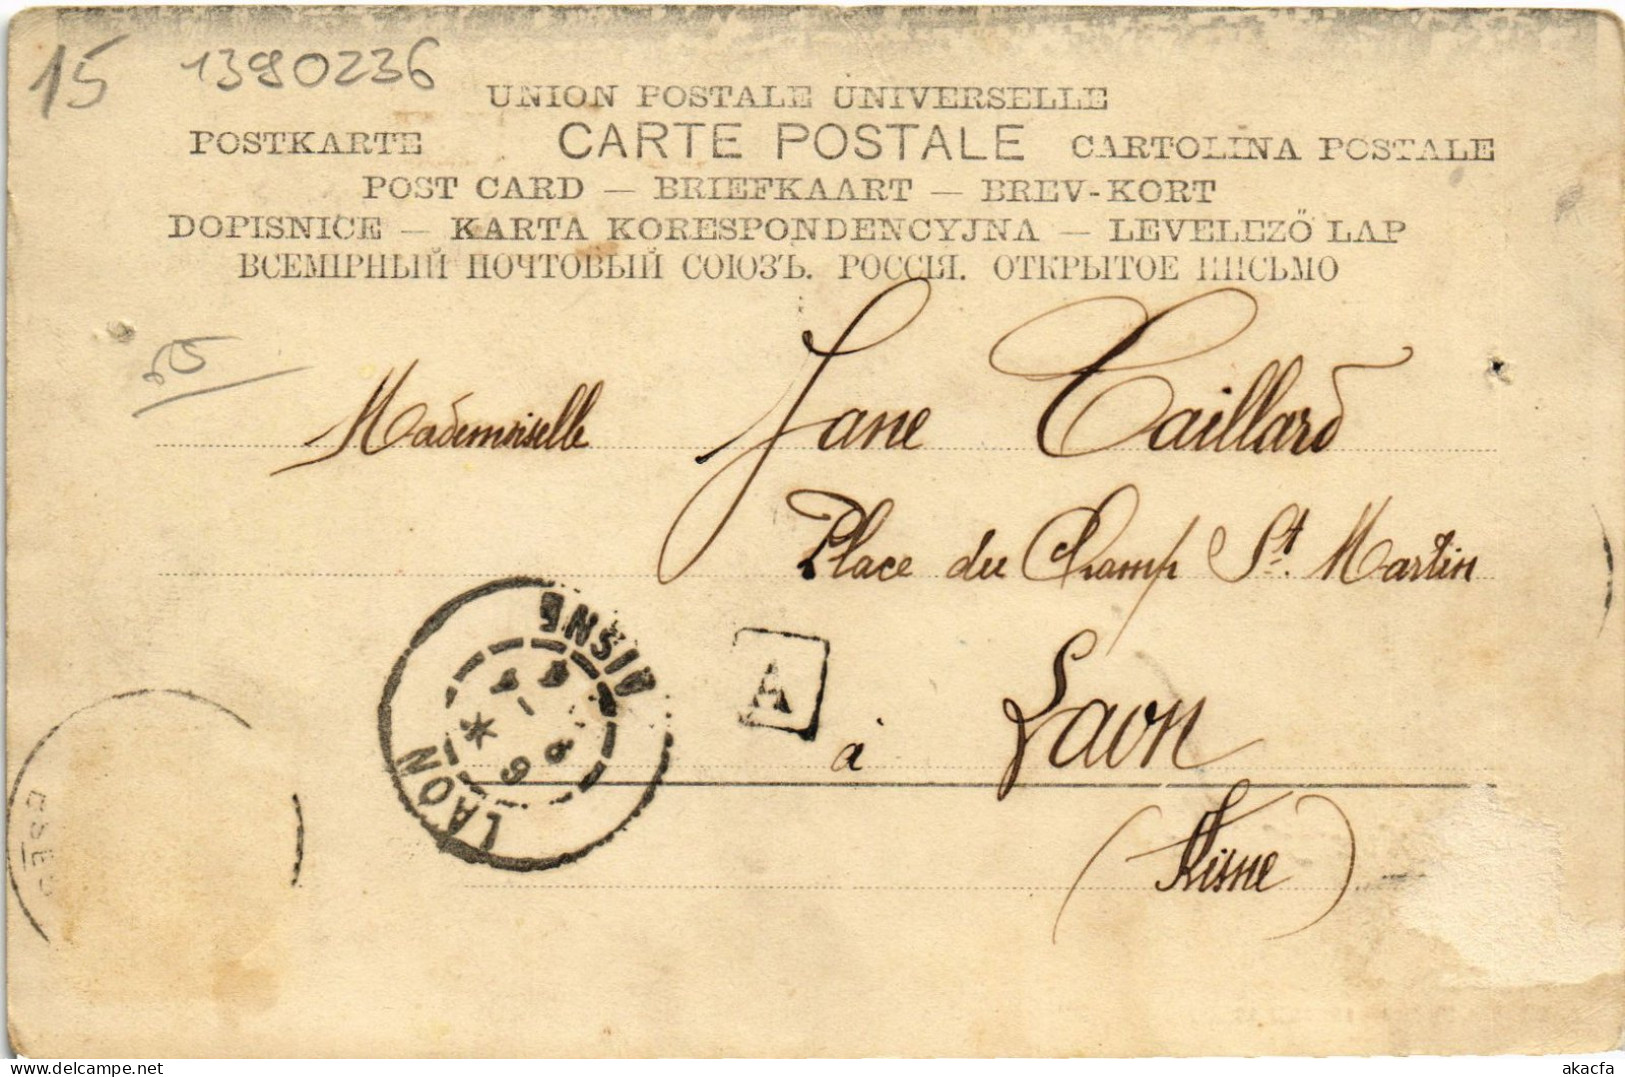 15 1390236
UNION POSTALE UNIVERSELLE
POSTKARTE CARTE POSTALE CARTOLINA POSTALE
POST CARD — BRIEFKAART — BREV-KORT
DOPISNICE — KARTA KORESPONDENCYJNA — LEVELEZŐ LAP
ВСЕМІРНЫЙ ПОЧТОВЫЙ СОЮЗЪ. РОССІЯ. ОТКРЫТОЕ ПИСЬМО
Mademoiselle Jane Caillard
Place du Champ St. Martin
A
à Laon
(Aisne)
LAON
AISNE
akacfa
www.delcampe.net